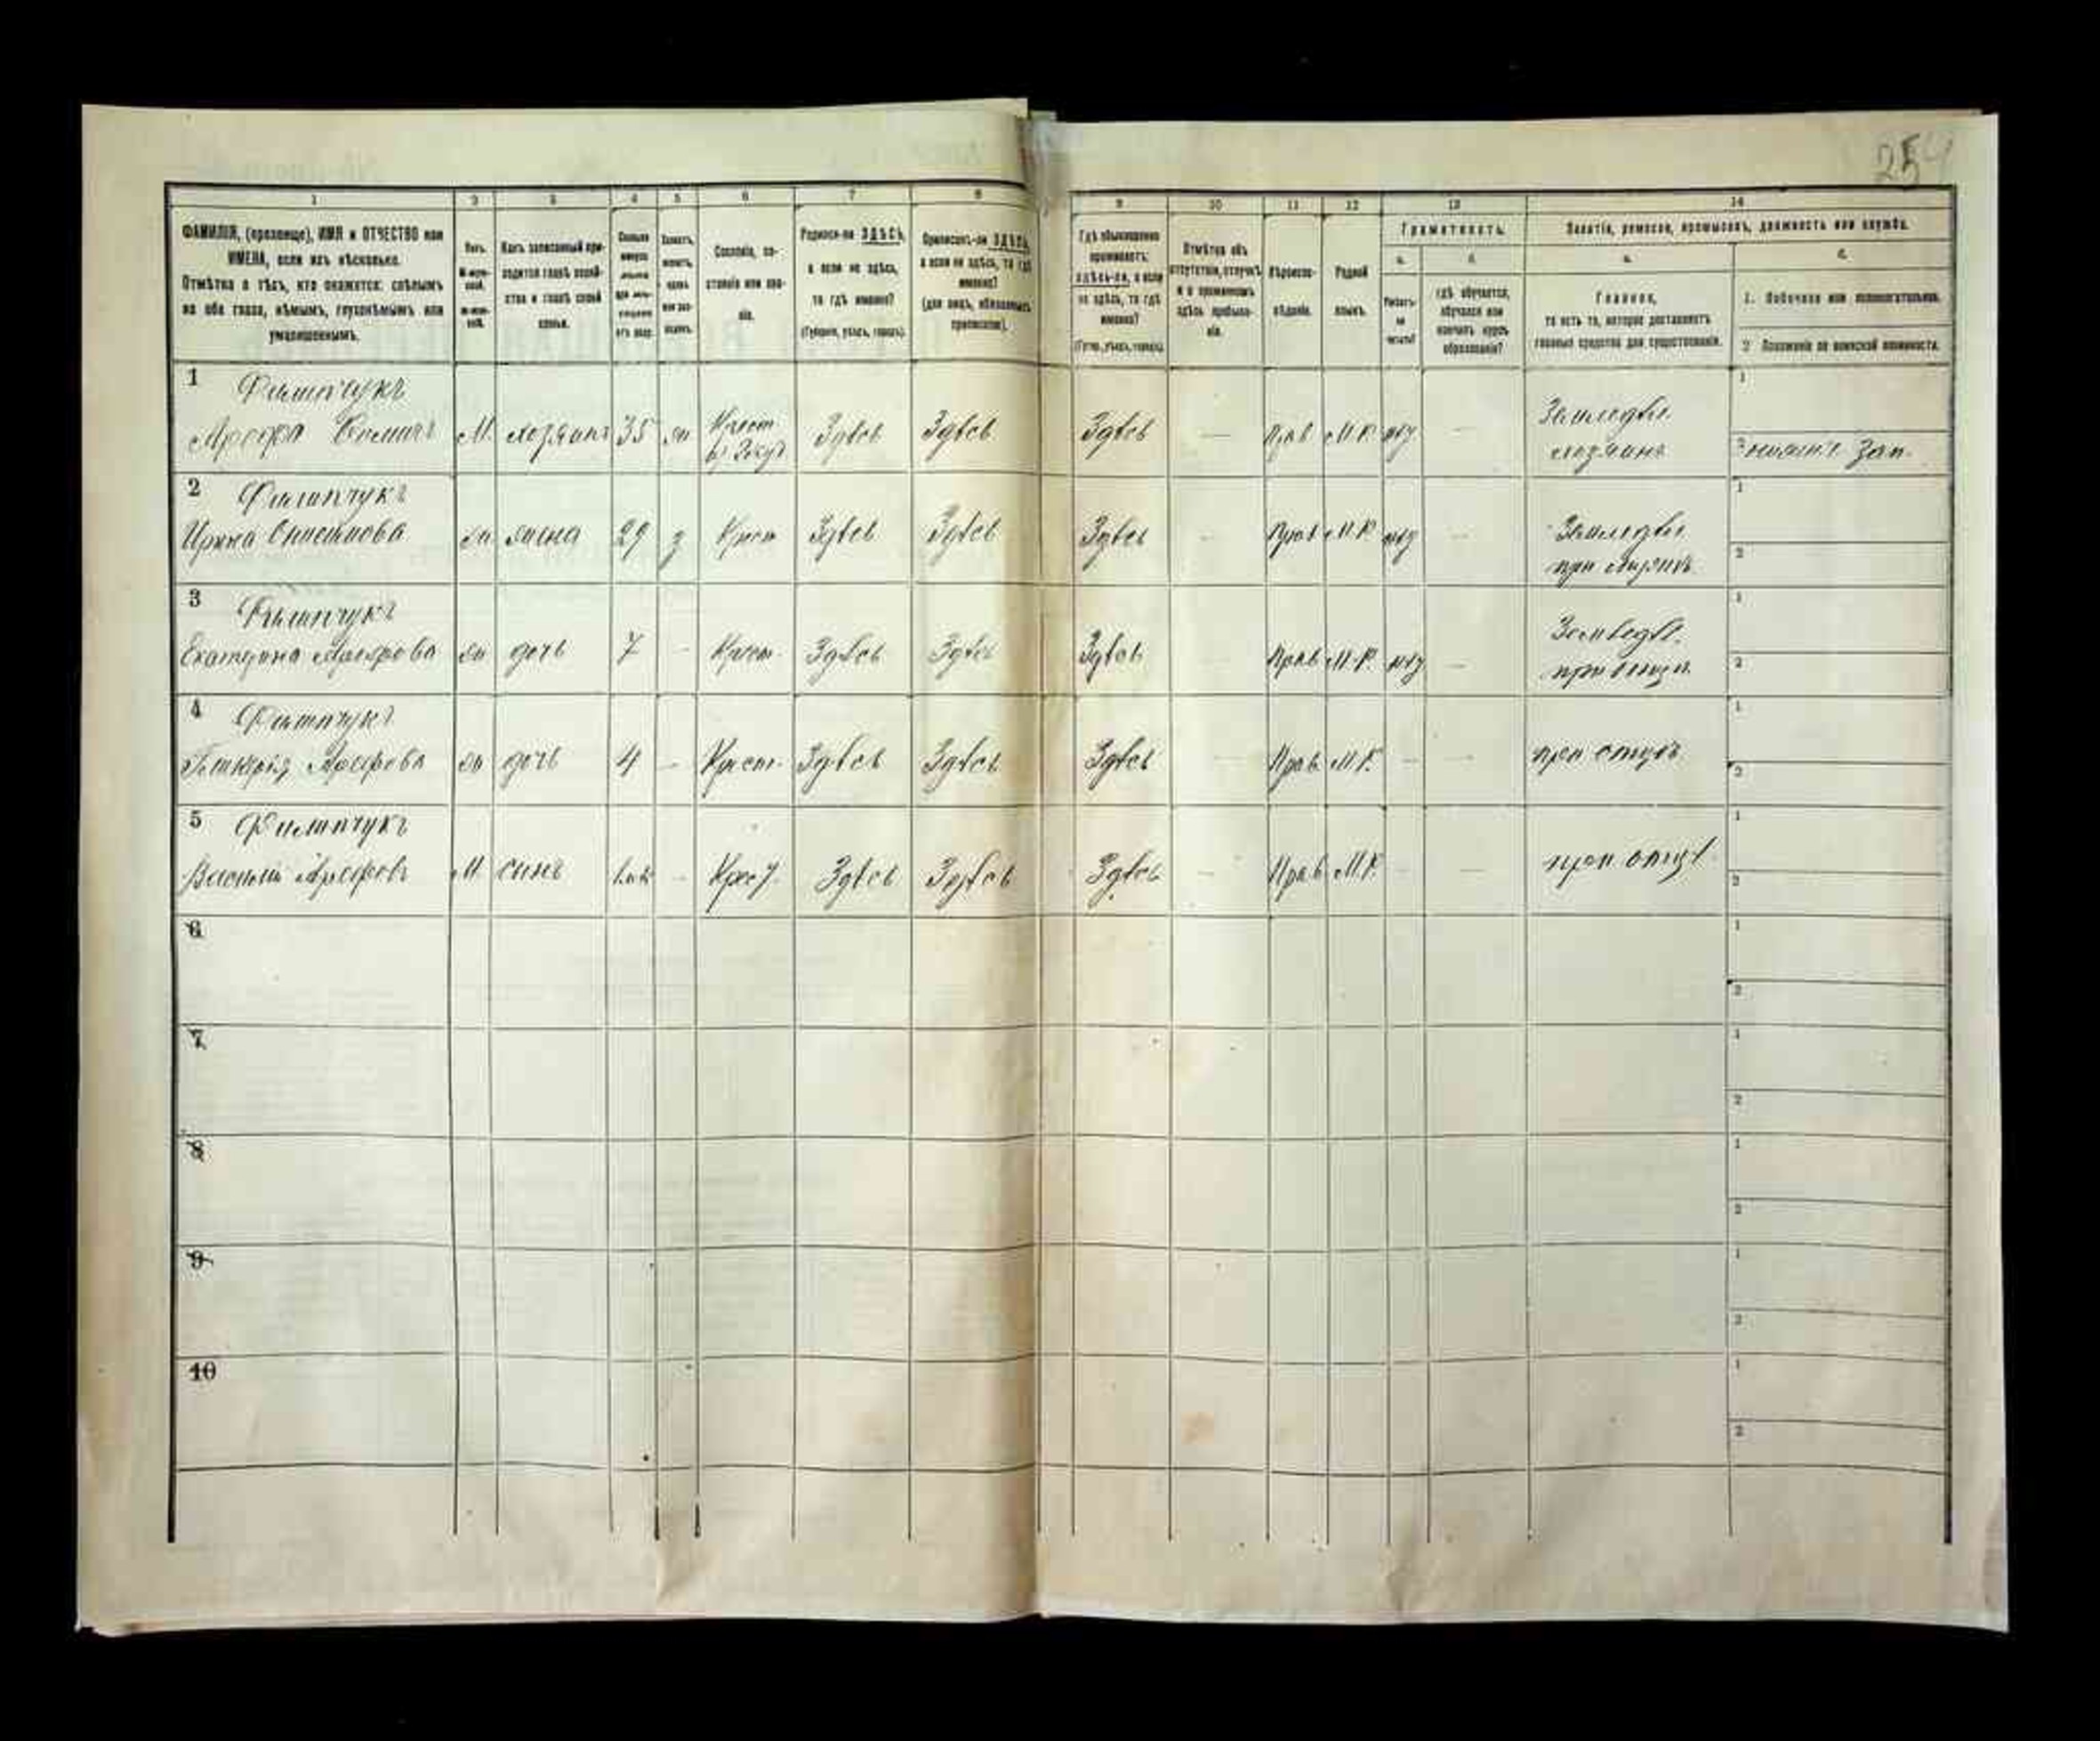 254
1
2
3
4
5
6
7
8
9
10
11
12
13
14
ФАМИЛІЯ, (прозвище), ИМЯ и ОТЧЕСТВО или
ИМЕНА, если ихъ нѣсколько.
Отмѣтка о тѣхъ, кто окажется: слѣпымъ
на оба глаза, нѣмымъ, глухонѣмымъ или
умалишеннымъ.
Полъ.
Какъ записанный при-
ходится главѣ хозяй-
ства и главѣ своей
семьи.
Сословіе, со-
стояніе или зва-
ніе.
Родился-ли ЗДѢСЬ,
а если не здѣсь,
то гдѣ именно?
(Губернія, уѣздъ, городъ).
Приписанъ-ли ЗДѢСЬ,
а если не здѣсь, то гдѣ
именно?
(для лицъ, обязанныхъ
припискою).
Гдѣ обыкновенно
проживаетъ:
здѣсь-ли, а если
не здѣсь, то гдѣ
именно?
(Губер., уѣздъ, городъ).
Отмѣтка объ
отсутствіи, отлучкѣ
и о временномъ
здѣсь пребыва-
ніи.
Вѣроиспо-
вѣданіе.
Родной
языкъ.
Грамотность.
а.
б.
Умѣетъ-
ли
читать?
гдѣ обучается,
обучался или
кончилъ курсъ
образованія?
Занятіе, ремесло, промыселъ, должность или служба.
а.
б.
Главное,
то есть то, которое доставляетъ
главныя средства для существованія.
1. Побочное или вспомогательное.
2 Положеніе по воинской повинности.
1 Филипчукъ
Арефа М. хозяинъ 35 жн Крест Здѣсь Здѣсь Здѣсь — Прав М.Р. нѣт — Земледѣл. хозяинъ 1 2
2 Филипчукъ
Ирина жн жена 29 з Крест Здѣсь Здѣсь Здѣсь — Прав М.Р. нѣт — Земледѣл. при 1 2
3 Филипчукъ
Екатерина Арефова жн дочь 7 - Крест. Здѣсь Здѣсь Здѣсь Прав М.Р. нѣт — Земледѣл. при 1 2
4 Филипчукъ
Арефова жн дочь 4 — Крест. Здѣсь Здѣсь Здѣсь — Прав. М.Р. — — при отцѣ 1 2
5 Филипчукъ
Василій Арефовъ М сынъ - Крест. Здѣсь Здѣсь Здѣсь Прав М.Р. — — при отцѣ 1 2
6 1 2
7 1 2
8 1 2
9 1 2
10 1 2